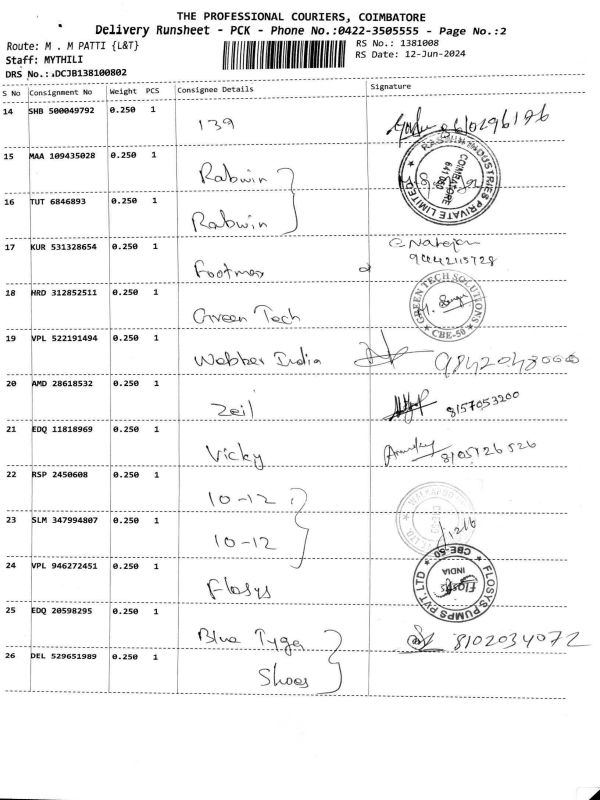 THE PROFESSIONAL COURIERS, COIMBATORE
Delivery Runsheet - PCK - Phone No.:0422-3505555 - Page No.:2
Route: M . M PATTI {L&T}
RS No.: 1381008
Staff: MYTHILI
RS Date: 12-Jun-2024
DRS No.:DCJB138100802
S No Consignment No Weight PCS Consignee Details Signature
14 SHB 500049792 0.250 1
139
15 MAA 109435028 0.250 1
Rabwin
RABWIN INDUSTRIES PRIVATE LIMITED
COIMBATORE
641 050
16 TUT 6846893 0.250 1
Rabwin
17 KUR 531328654 0.250 1
Footmax
18 HRD 312852511 0.250 1
Green Tech
GREEN TECH SOLUTIONS
CBE-50
19 VPL 522191494 0.250 1
Webber India
20 AMD 28618532 0.250 1
Zeil 8157053200
21 EDQ 11818969 0.250 1
Vicky 8105126526
22 RSP 2450608 0.250 1
10-12
23 SLM 347994807 0.250 1
10-12
24 VPL 946272451 0.250 1
Flosys
FLOSYS PUMPS PVT. LTD
CBE-50
INDIA
25 EDQ 20598295 0.250 1
Blue Tyga 8102034072
26 DEL 529651989 0.250 1
Shoes